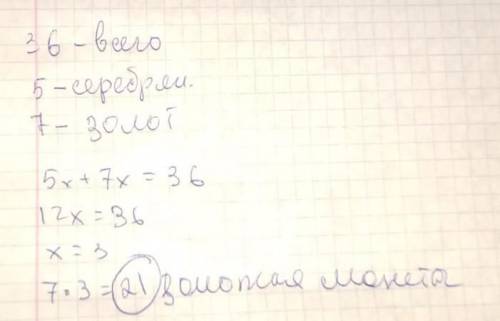 36 - всего
5 - серебрян.
7 - золот
5x + 7x = 36
12x = 36
x = 3
7 • 3 = 21 золотая монета